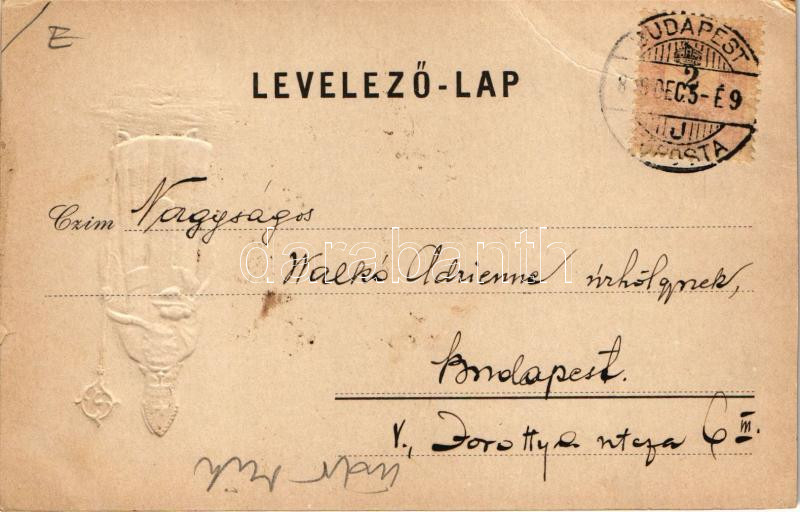 E
BUDAPEST
2
DEC.5-É9
J
FŐPOSTA
LEVELEZŐ-LAP
Czim Nagyságos
Walkó Adrienne úrhölgynek,
Budapest.
V., Dorottya utcza 6 III.
darabanth